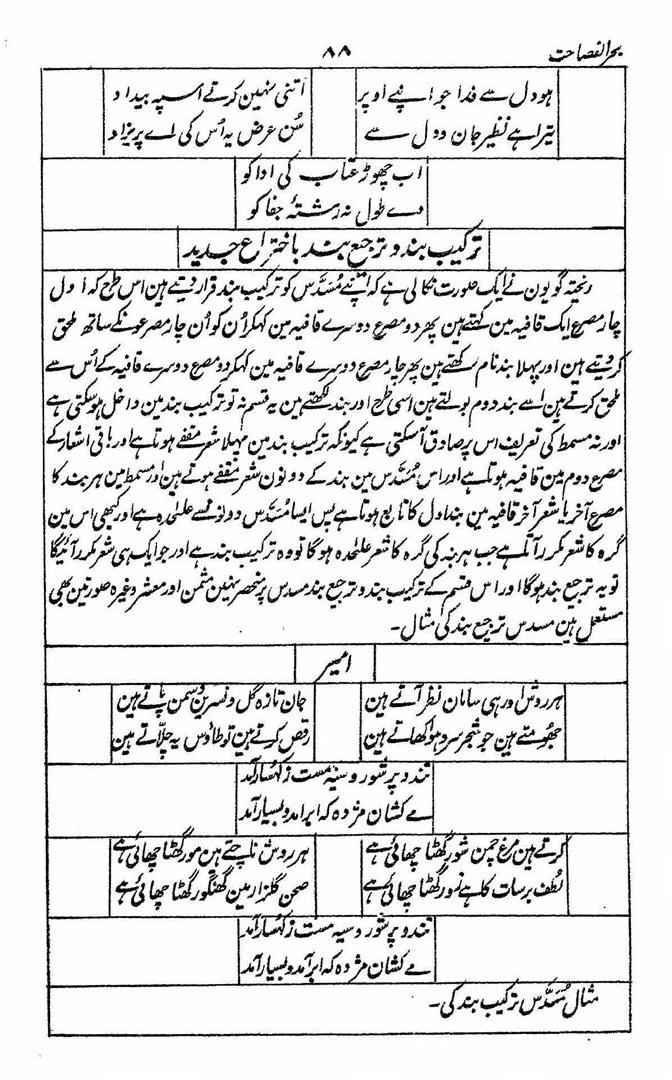 بحر الفصاحت
۸۸
ہو دل سے فدا جو اپنے اوپر
اتنی نہین کرتے اسپہ بیداد
تیرا ہے نظیر جان و دل سے
سُن عرض یہ اُس کی اے پریزاد
اب چھوڑ عتاب کی ادا کو
دے طول نہ رشتۂ جفا کو
ترکیب بند و ترجیع بند باختراع جدید
ریختہ گویون نے ایک صورت نکالی ہے کہ اپنے مُسَدَّس کو ترکیب بند قرار دیتے ہین اس طرح کہ اول
چار مصرع ایک قافیہ مین کہتے ہین پھر دو مصرع دوسرے قافیہ مین کہکر اُن کو اُن چار مصرعونکے ساتھ ملحق
کردیتے ہین اور پہلا بند نام رکھتے ہین پھر چار مصرع دوسرے قافیہ مین کہکر دو مصرع دوسرے قافیہ کے اُس سے
ملحق کرتے ہین اسے بند دوم بولتے ہین اسی طرح اور بند لکھتے ہین یہ قسم نہ تو ترکیب بند مین داخل ہو سکتی ہے
اور نہ مسمط کی تعریف اس پر صادق آسکتی ہے کیونکہ ترکیب بند مین پہلا شعر مقفےٰ ہوتا ہے اور باقی اشعار کے
مصرع دوم مین قافیہ ہوتا ہے اور اس مُسَدَّس مین بند کے دونون شعر مقفےٰ ہوتے ہین اور مسمط مین ہر بند کا
مصرع آخر یا شعر آخر قافیہ مین بند اول کا تابع ہوتا ہے پس ایسا مُسَدَّس دونونسے علٰحدہ ہے اور کبھی اس مین
گرہ کا شعر مکرر آتا ہے جب ہر بند کی گرہ کا شعر علٰحدہ ہوگا تو وہ ترکیب بند ہے اور جو ایک ہی شعر مکرر آئیگا
تو یہ ترجیع بند ہوگا اور اس قسم کے ترکیب بند و ترجیع بند مسدس پر منحصر نہین مثمن اور معشر وغیرہ صورتین بھی
مستعمل ہین مسدس ترجیع بند کی مثال۔
امیر
ہر روش اور ہی سامان نظر آتے ہین
جان تازہ گل و نسرین و سمن پاتے ہین
جھومتے ہین جو شجر سرد ہوا کھاتے ہین
رقص کرتے ہین تو طاؤس یہ چلّاتے ہین
تند و پر شور و سیہ مست ز کہسار آمد
مے کشان مژدہ کہ ابر آمد و بسیار آمد
کرتے ہین مرغ چمن شور گھٹا چھائی ہے
ہر روش ناچتے ہین مور گھٹا چھائی ہے
لُطف برسات کا ہے زور گھٹا چھائی ہے
صحن گلزار مین گھنگور گھٹا چھائی ہے
تند و پر شور و سیہ مست ز کہسار آمد
مے کشان مژدہ کہ ابر آمد و بسیار آمد
مثال مُسَدَّس ترکیب بند کی۔